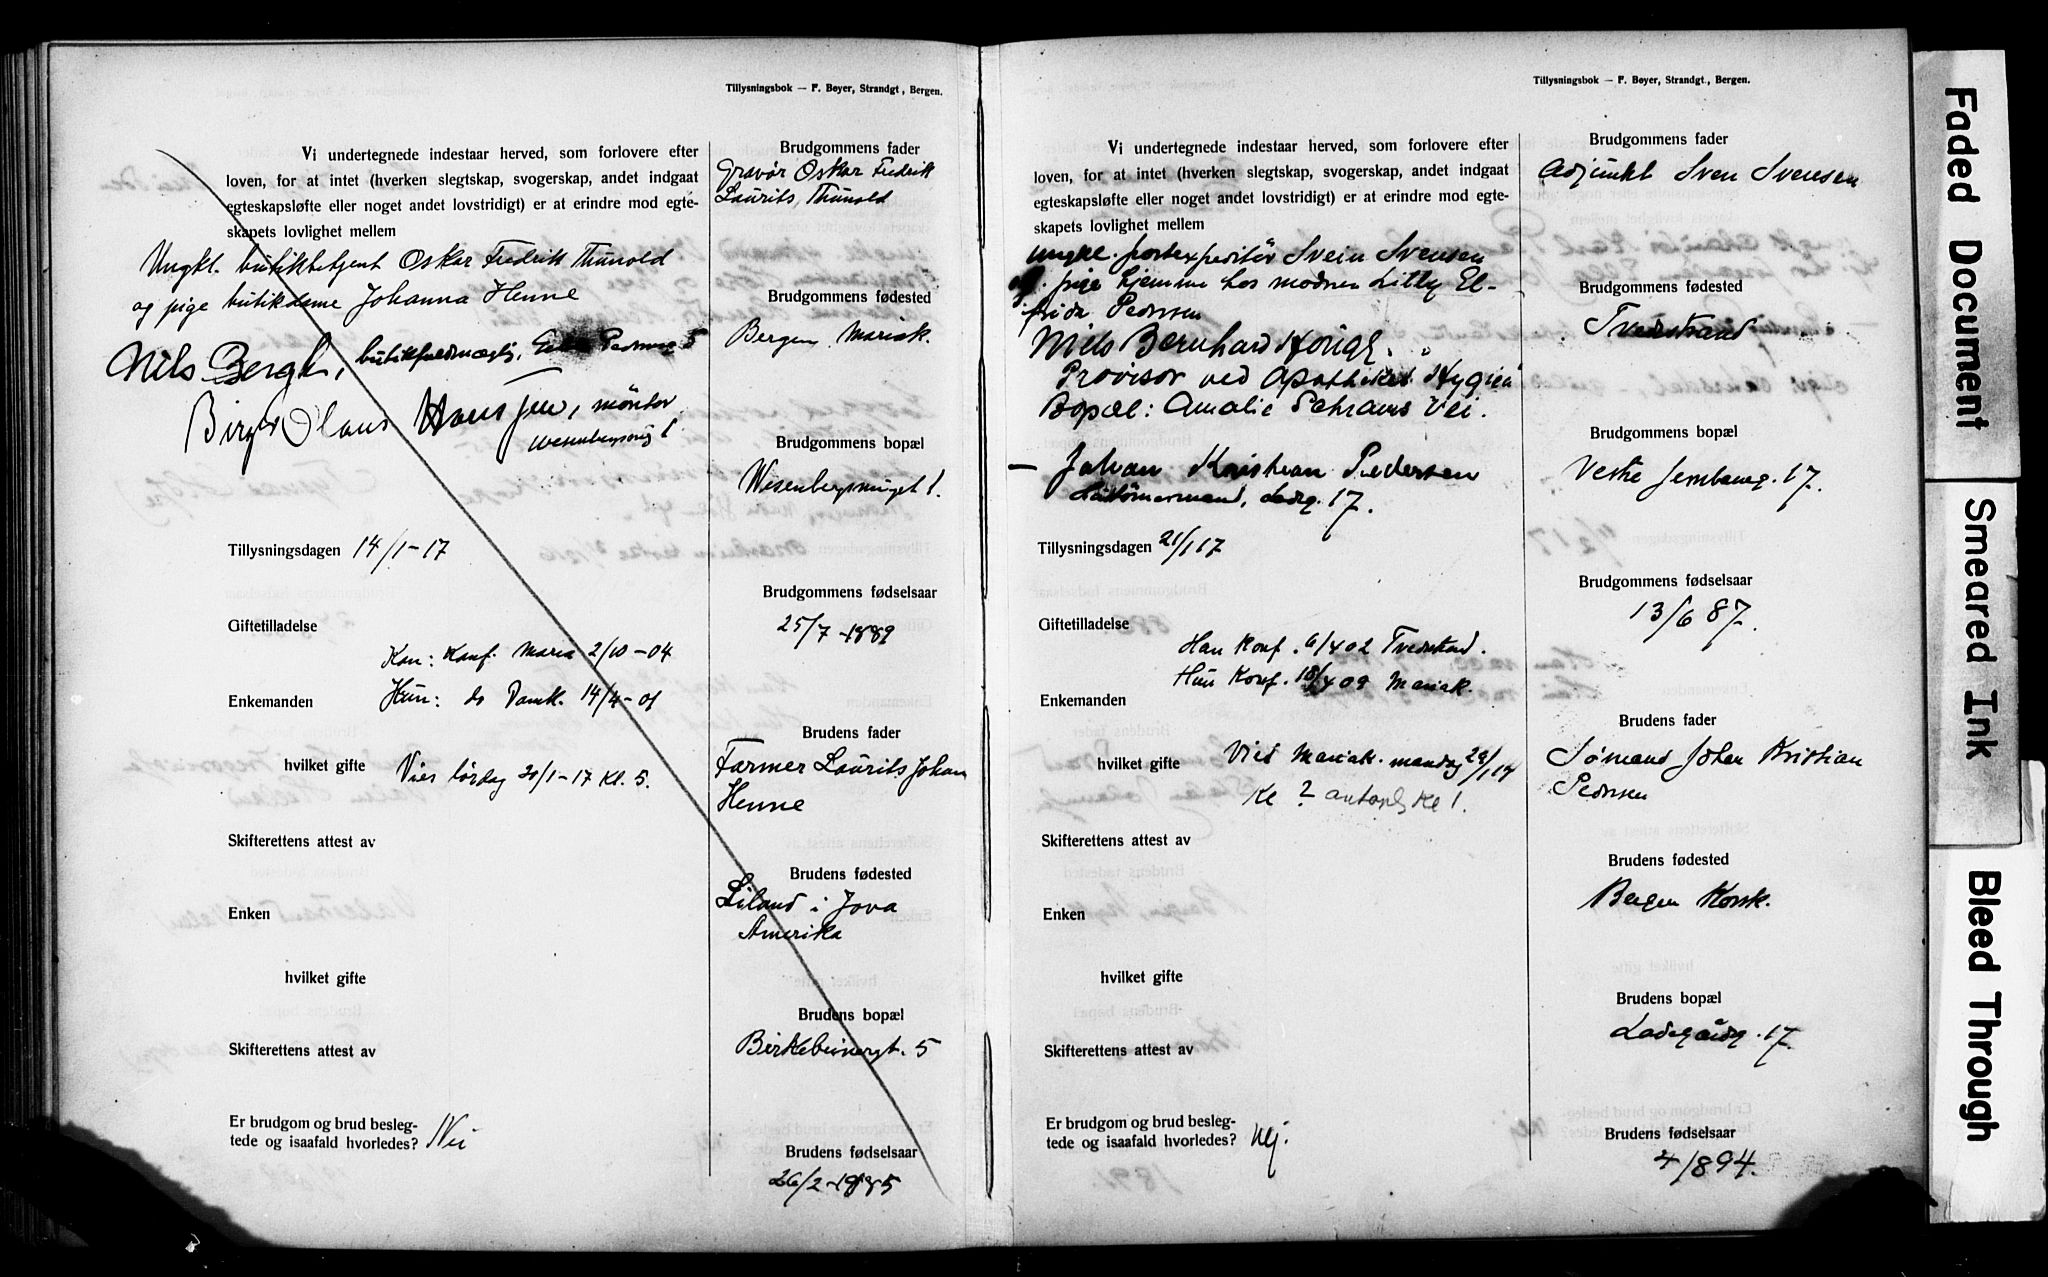 Tillysningsbok — F. Bøyer, Strandgt., Bergen.
Vi undertegnede indestaar herved, som forlovere efter
loven, for at intet (hverken slegtskap, svogerskap, andet indgaat
egteskapsløfte eller noget andet lovstridigt) er at erindre mod egte-
skapets lovlighet mellem
Ungkl. butikbetjent Oskar Fredrik Thunold
og pige butikdame Johanna Henne
Nils Bergh,
Birger Olaus Hanssen, montør
Wesenbergsmug 1
Tillysningsdagen 14/1-17
Giftetilladelse
Han: Konf. Maria 2/10-04
Enkemanden
Hun: do Domk. 14/4-01
hvilket gifte
Vies lørdag 20/1-17 Kl. 5.
Skifterettens attest av
Enken
hvilket gifte
Skifterettens attest av
Er brudgom og brud besleg-
tede og isaafald hvorledes? Nei
Brudgommens fader
Gravør Oskar Fredrik
Laurits Thunold
Brudgommens fødested
Bergen Mariak.
Brudgommens bopæl
Wesenbergsmuget 1.
Brudgommens fødselsaar
25/7-1889
Brudens fader
Farmer Laurits Johan
Henne
Brudens fødested
Leland i Jova
Amerika
Brudens bopæl
Birkebeinergt. 5
Brudens fødselsaar
26/2-1885
Tillysningsbok — F. Bøyer, Strandgt., Bergen.
Vi undertegnede indestaar herved, som forlovere efter
loven, for at intet (hverken slegtskap, svogerskap, andet indgaat
egteskapsløfte eller noget andet lovstridigt) er at erindre mod egte-
skapets lovlighet mellem
Ungkl. postexpeditör Svein Svensen
og pige hjemme hos moderen Lilly El-
frida Pedersen
Nils Bernhard
Provisor ved Apotheket Hygiea
Bopæl: Amalie Schrams Vei.
— Johan Kristian Pedersen
Ladeg. 17.
Tillysningsdagen 21/1 17
Giftetilladelse
Han Konf. 6/4 02 Tvedestrand.
Hun Konf. 18/4 09 Mariak.
Enkemanden
hvilket gifte
Vies Mariak. mandag 29/1 17
Kl ? antagl Kl 1.
Skifterettens attest av
Enken
hvilket gifte
Skifterettens attest av
Er brudgom og brud besleg-
tede og isaafald hvorledes? Nej.
Brudgommens fader
Adjunkt Sven Svensen
Brudgommens fødested
Tvedestrand
Brudgommens bopæl
Vestre Jernbaneg. 17.
Brudgommens fødselsaar
13/6 87.
Brudens fader
Sømand Johan Kristian
Pedersen
Brudens fødested
Bergen Korsk.
Brudens bopæl
Ladegårdsg. 17.
Brudens fødselsaar
4/1894.
Faded Document
Smeared Ink
Bleed Through